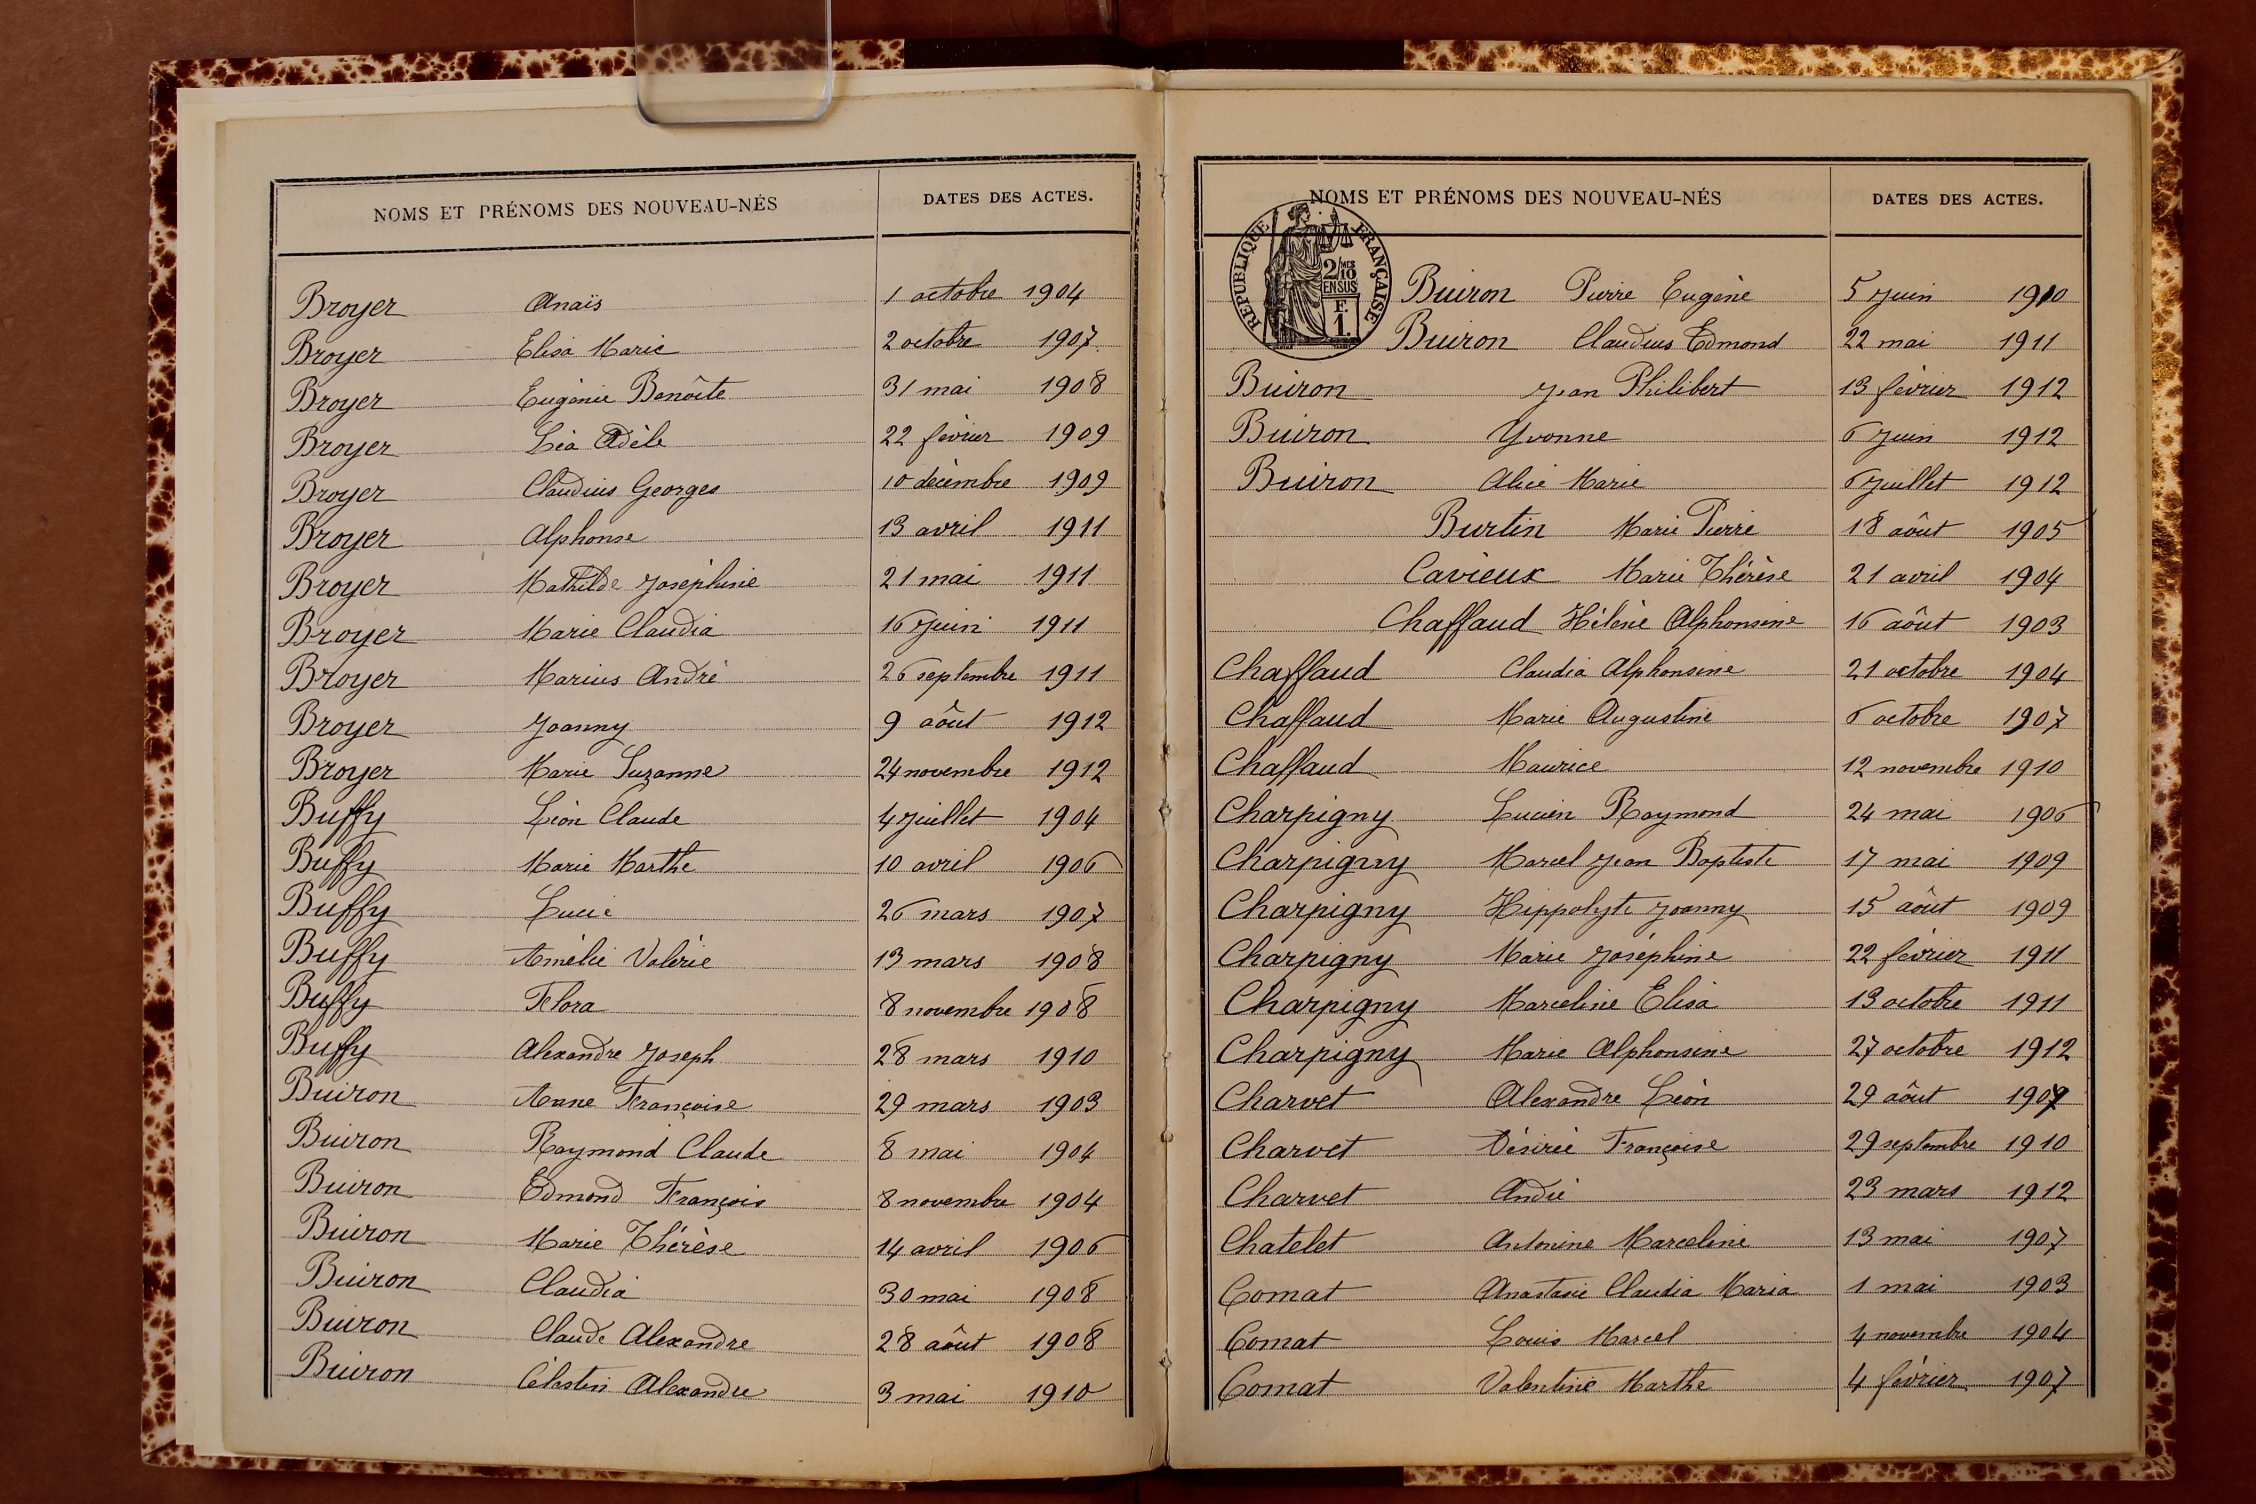 NOMS ET PRÉNOMS DES NOUVEAU-NÉS DATES DES ACTES.
Broyer Anaïs 1 octobre 1904
Broyer Elisa Marie 2 octobre 1907
Broyer Eugénie Benoîte 31 mai 1908
Broyer Léa Adèle 22 février 1909
Broyer Claudius Georges 10 décembre 1909
Broyer Alphonse 13 avril 1911
Broyer Mathilde Joséphine 21 mai 1911
Broyer Marie Claudia 16 juin 1911
Broyer Marius André 26 septembre 1911
Broyer Joanny 9 aôut 1912
Broyer Marie Suzanne 24 novembre 1912
Buffy Léon Claude 4 juillet 1904
Buffy Marie Marthe 10 avril 1906
Buffy Lucie 26 mars 1907
Buffy Amélie Valérie 13 mars 1908
Buffy Flora 8 novembre 1908
Buffy Alexandre Joseph 28 mars 1910
Buiron Anne Françoise 29 mars 1903
Buiron Raymond Claude 8 mai 1904
Buiron Edmond François 8 novembre 1904
Buiron Marie Thérèse 14 avril 1906
Buiron Claudia 30 mai 1908
Buiron Claude Alexandre 28 aôut 1908
Buiron Célestin Alexandre 3 mai 1910
NOMS ET PRÉNOMS DES NOUVEAU-NÉS DATES DES ACTES.
RÉPUBLIQUE FRANÇAISE
2/10 MES
EN SUS
F.
1.
Buiron Pierre Eugène 5 juin 1910
Buiron Claudius Edmond 22 mai 1911
Buiron Jean Philibert 13 février 1912
Buiron Yvonne 6 juin 1912
Buiron Alice Marie 6 juillet 1912
Burtin Marie Pierre 18 aôut 1905
Cavieux Marie Thérèse 21 avril 1904
Chaffaud Hélène Alphonsine 16 aôut 1903
Chaffaud Claudia Alphonsine 21 octobre 1904
Chaffaud Marie Augustine 6 octobre 1907
Chaffaud Maurice 12 novembre 1910
Charpigny Lucien Raymond 24 mai 1906
Charpigny Marcel Jean Baptiste 17 mai 1909
Charpigny Hippolyte Joanny 15 aôut 1909
Charpigny Marie Joséphine 22 février 1911
Charpigny Marceline Elisa 13 octobre 1911
Charpigny Marie Alphonsine 27 octobre 1912
Charvet Alexandre Léon 29 aôut
Charvet Désirée Françoise 29 septembre 1910
Charvet André 23 mars 1912
Chatelet Antonine Marceline 13 mai 1907
Comat Anastasie Claudia Maria 1 mai 1903
Comat Louis Marcel 4 novembre 1904
Comat Valentine Marthe 4 février 1907